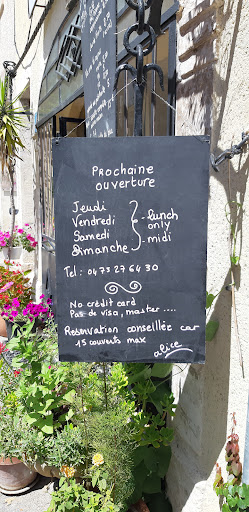 Prochaine
ouverture
Jeudi
Vendredi
Samedi
Dimanche
lunch
only
midi
Tel : 04 75 27 64 30
No crédit card
Pas de visa, master ....
Réservation conseillée car
15 couverts max
alice